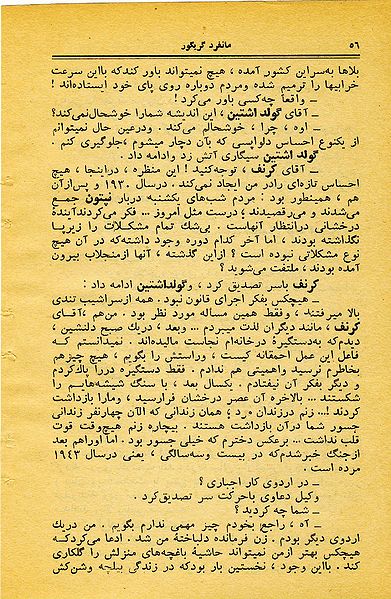 ۵۶
مانفرد گریگور
بلاها به‌سراین کشور آمده ، هیچ نمیتواند باور کندکه بااین سرعت
خرابیها را ترمیم شده ومردم دوباره روی پای خود ایستاده‌اند !
ــ واقعا چه‌کسی باور می‌کرد !
ــ آقای گولد اشتین ، این اندیشه شمارا خوشحال‌نمی‌کند؟
ــ اوه ، چرا ، خوشحالم می‌کند . ودرعین حال نمیتوانم
از یکنوع احساس دلواپسی که بآن دچار میشوم ،جلوگیری کنم .
گولد اشتین سیگاری آتش زد وادامه داد .
ــ آقای کرنف ، توجه‌کنید ! این منظره ، دراینجا ، هیچ
احساس تازه‌ای رادر من ایجاد نمی‌کند . درسال ۱۹۳۰ و پس‌ازآن
هم ، همینطور بود : مردم شب‌های یکشنبه دربار نپتون جمع
می‌شدند و می‌رقصیدند ؛ درست مثل امروز ... فکر می‌کردندآیندهٔ
درخشانی درانتظار آنهاست . بی‌شك تمام مشکلات را زیرپا
نگذاشته بودند ، اما آخر کدام دوره وجود داشته‌که در آن هیچ
نوع مشکلاتی نبوده است ؟ ازاین گذشته ، آنها ازمنجلاب بیرون
آمده بودند ، ملتفت می‌شوید ؟
کرنف باسر تصدیق کرد ، وگولداشتین ادامه داد :
ــ هیچکس بفکر اجرای قانون نبود . همه ازسراشیب تندی
بالا میرفتند ، وفقط همین مساله مورد نظر بود . من‌هم ،آقـای
کرنف ، مانند دیگران لذت میبردم ... وبعد ، دریك صبح دلنشین ،
دیدم‌که به‌دستگیرهٔ درخانه‌ام نجاست مالیده‌اند . نمیدانستم که
فاعل این عمل احمقانه کیست ، وراستش را بگویم ، هیچ چیزهم
بخاطرم نرسید واهمیتی هم ندادم . فقط دستگیره دررا پاك‌کردم
و دیگر بفکر آن نیفتادم . یکسال بعد ، با سنگ شیشه‌هایـم را
شکستند ... بالاخره آن عصر درخشان فرارسید ، ومارا بازداشت
کردند !... زنم درزندان مرد ؛ همان زندانی که الآن چهارنفر زندانی
جسور شما درآن بازداشت هستند . بیچاره زنم هیچ‌وقت قوت
قلب نداشت ... برعکس دخترم که خیلی جسور بود . اما اوراهم بعد
ازجنگ خبرشدم‌که در بیست وسه‌سالگی ، یعنی درسال ۱۹۴۳
مرده است .
ــ در اردوی کار اجباری ؟
وکیل دعاوی باحرکت سر تصدیق‌کرد .
ــ شما چه کردید ؟
ــ آه ، راجع بخودم چیز مهمی ندارم بگویم . من دریك
اردوی دیگر بودم . زن فرمانده دلباختهٔ من شد . ادعا می‌کردکـه
هیچکس بهتر ازمن نمیتواند حاشیهٔ باغچه‌های منزلش را گلکاری
کند . بااین وجود ، نخستین بار بودکه در زندگی بیلچه وشن‌کش